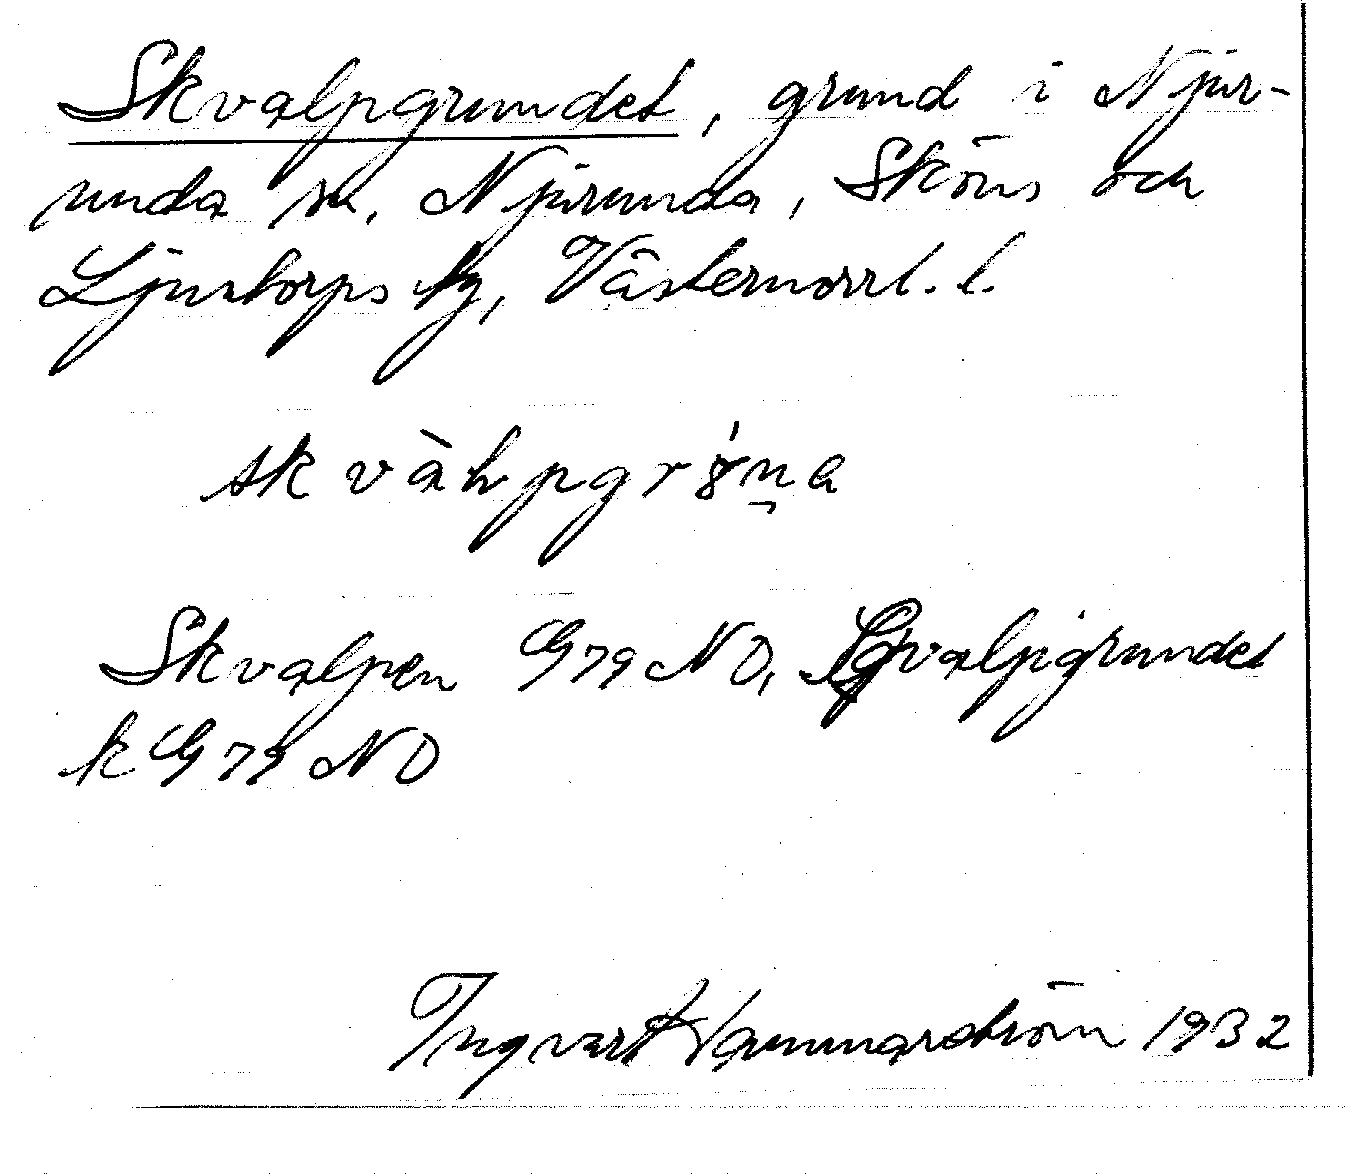 Skvalpgrundet, grund i Njur-
unda sn, Njurunda, Sköns och
Ljustorps tg, Västernorrl. l.
skvàhpgrýn̡a
Skvalpen G79 NO, Sqvalpgrundet
k G79 NO
Ingvar Hammarström 1932